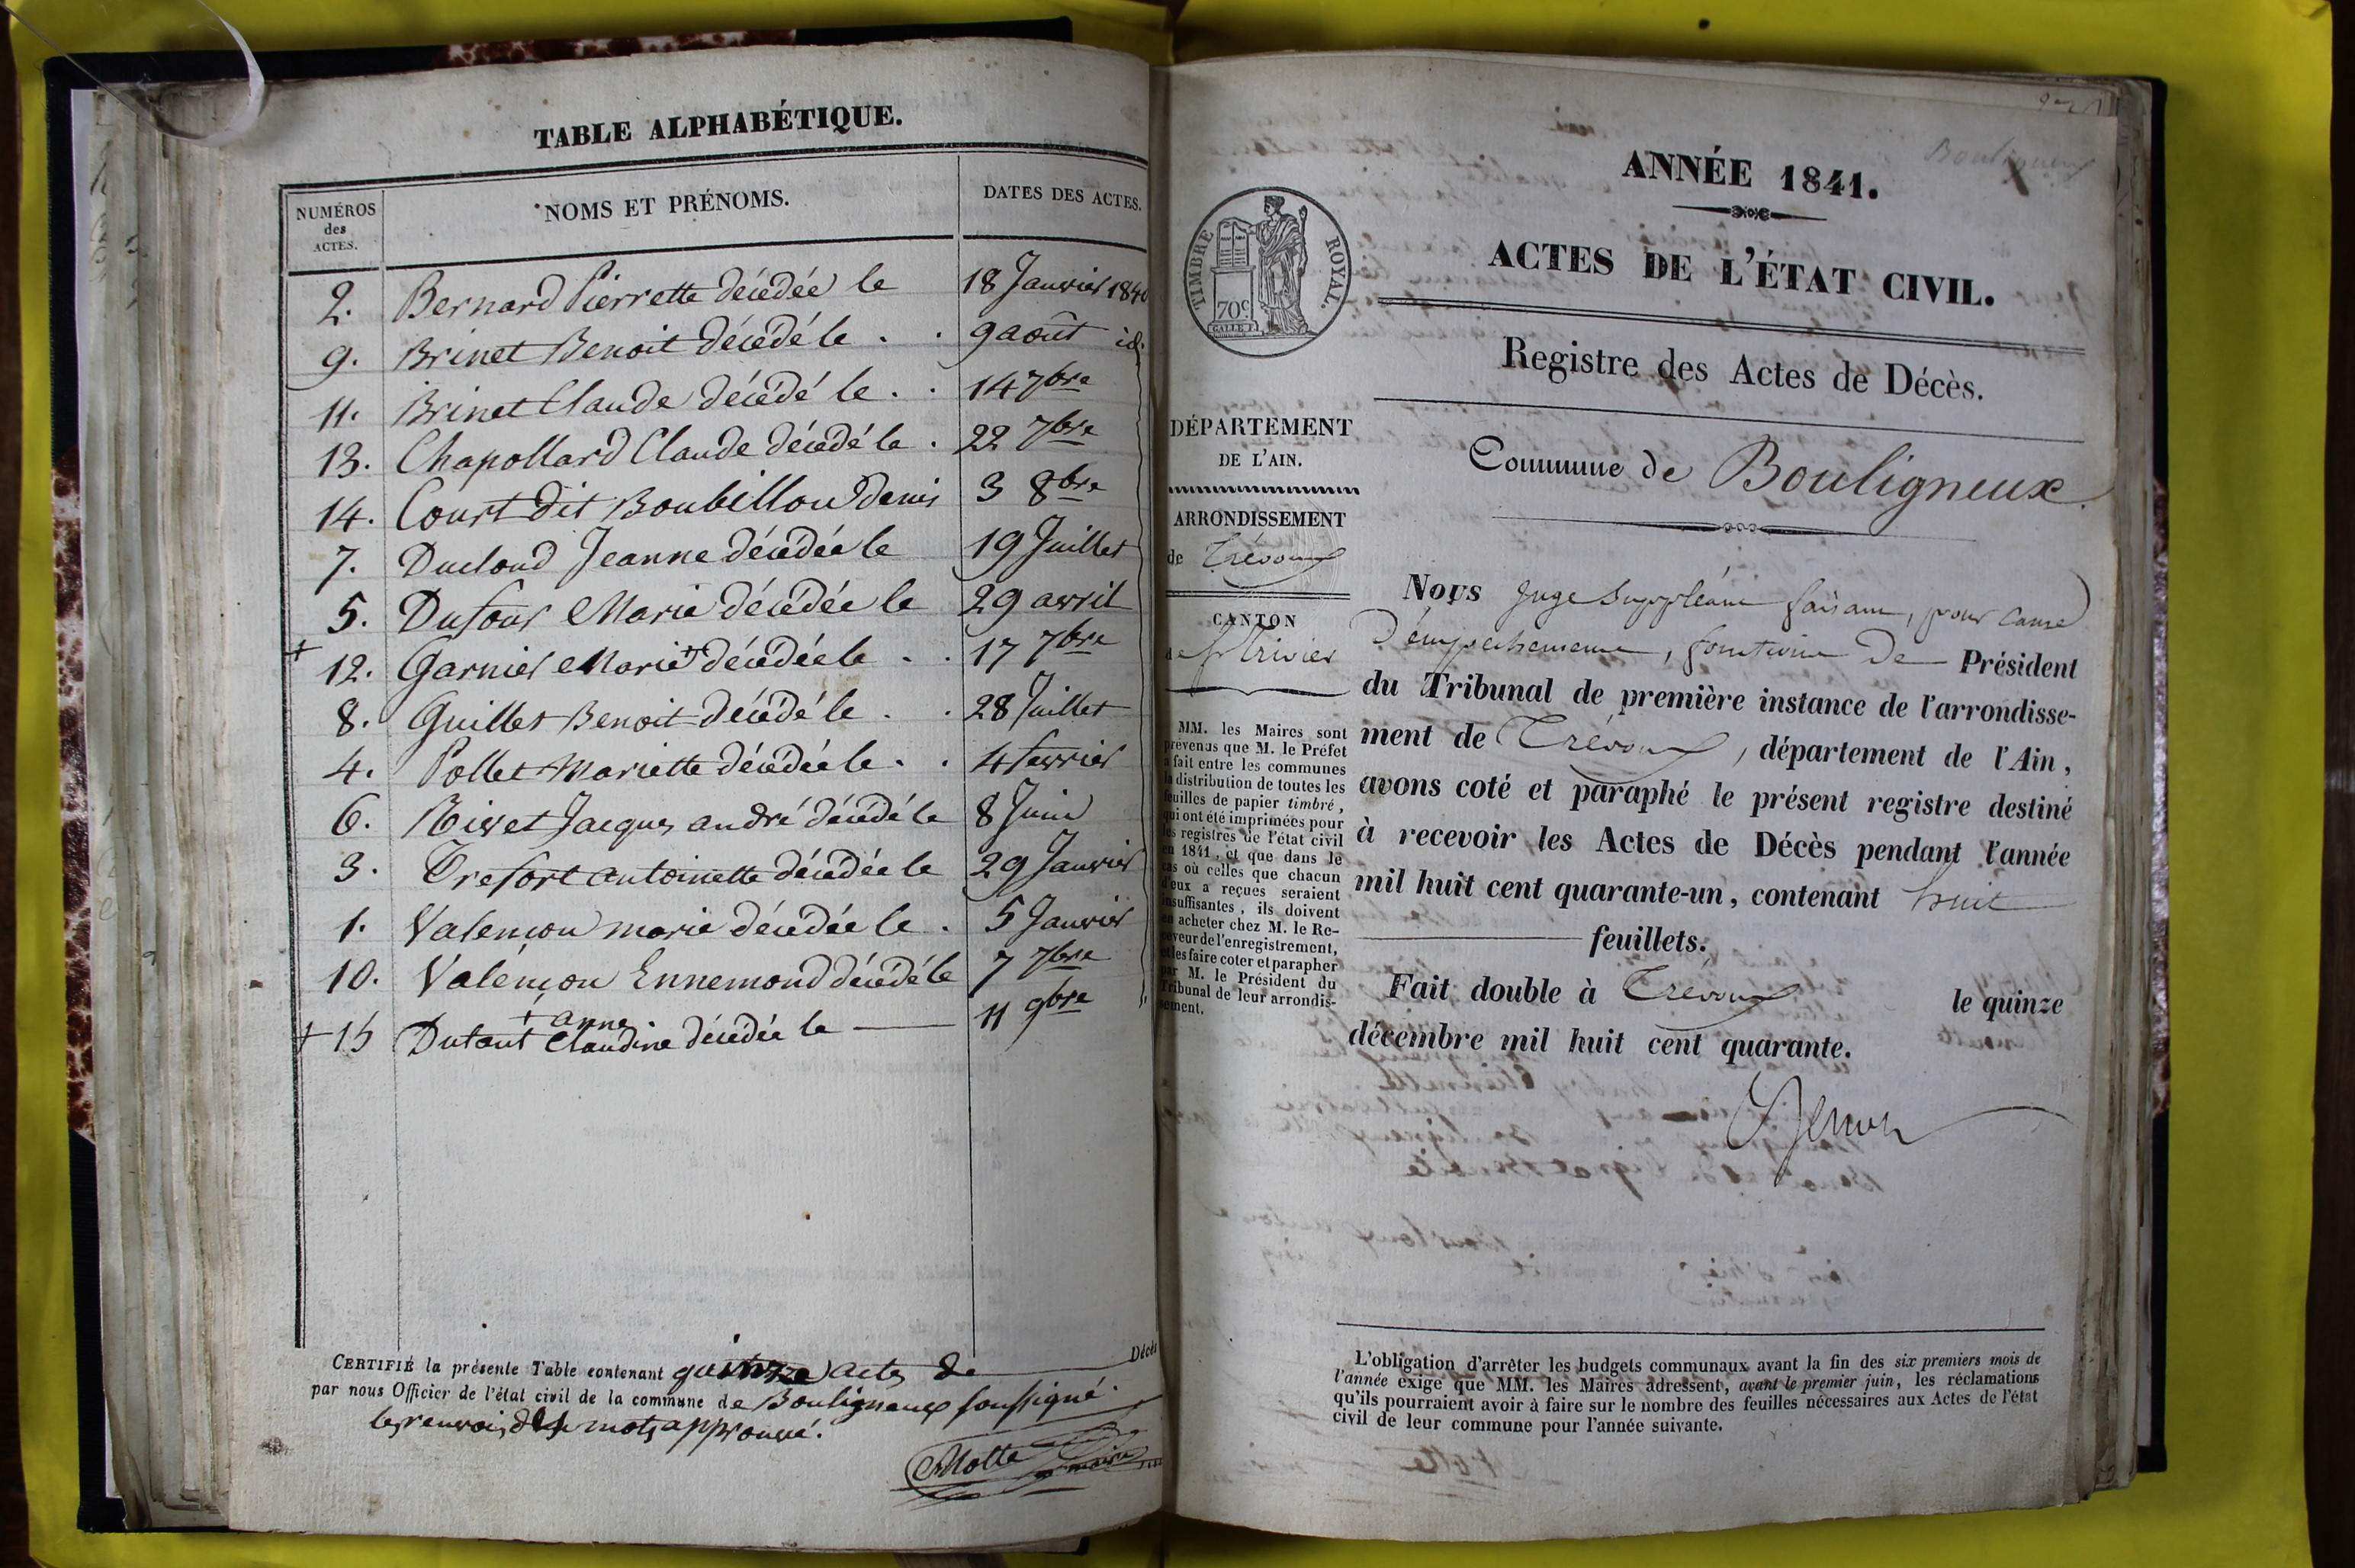 TABLE ALPHABÉTIQUE.
NUMÉROS des ACTES. NOMS ET PRÉNOMS. DATES DES ACTES.
2. Bernard Pierrette décédée le 18 Janvier 1840
9. Brinet Benoit décédé le . . 9 août id.
11. Brinet Claude décédé le . . 14 7bre
13. Chapollard Claude décédé le . 22 7bre
14. Court dit Boubillon denis 3 8bre
7. Ducloud Jeanne décédée le 19 Juillet
5. Dufour Marie décédée le 29 avril
+ 12. Garnier Marie + décédée le . . 17 7bre
8. Guillet Benoit décédé le . . 28 Juillet
4. Pollet Mariette décédée le . . 4 fevrier
6. Rivet Jacques andré décédé le 8 Juin
3. Trefort antoinette décédée le 29 Janvier
1. Valençon marie décédée le . 5 Janvier
10. Valençon Ennemond décédé le 7 7bre
+ anne
+ 15 Dutant Claudine décédée le — 11 9bre
CERTIFIÉ la présente Table contenant quinze actes de Décès
par nous Officier de l'état civil de la commune de Bouligneux soussigné.
les renvois, mots approuvé.
Motte maire
Bouligneux
ANNÉE 1841.
ACTES DE L'ÉTAT CIVIL.
TIMBRE ROYAL.
70c
Registre des Actes de Décès.
Commune de Bouligneux
DÉPARTEMENT
DE L'AIN.
ARRONDISSEMENT
de Trévoux
CANTON
de St Trivier
MM. les Maires sont
prévenus que M. le Préfet
a fait entre les communes
la distribution de toutes les
feuilles de papier timbré,
qui ont été imprimées pour
les registres de l'état civil
en 1841, et que dans le
cas où celles que chacun
d'eux a reçues seraient
insuffisantes, ils doivent
en acheter chez M. le Re-
ceveur de l'enregistrement,
et les faire coter et parapher
par M. le Président du
Tribunal de leur arrondis-
sement.
Nous Juge Suppléant faisant, pour cause
d'empêchement, fonctions de Président
du Tribunal de première instance de l'arrondisse-
ment de Trévoux, département de l'Ain,
avons coté et paraphé le présent registre destiné
à recevoir les Actes de Décès pendant l'année
mil huit cent quarante-un, contenant huit
feuillets.
Fait double à Trévoux le quinze
décembre mil huit cent quarante.
L'obligation d'arrêter les budgets communaux avant la fin des six premiers mois de
l'année exige que MM. les Maires adressent, avant le premier juin, les réclamations
qu'ils pourraient avoir à faire sur le nombre des feuilles nécessaires aux Actes de l'état
civil de leur commune pour l'année suivante.